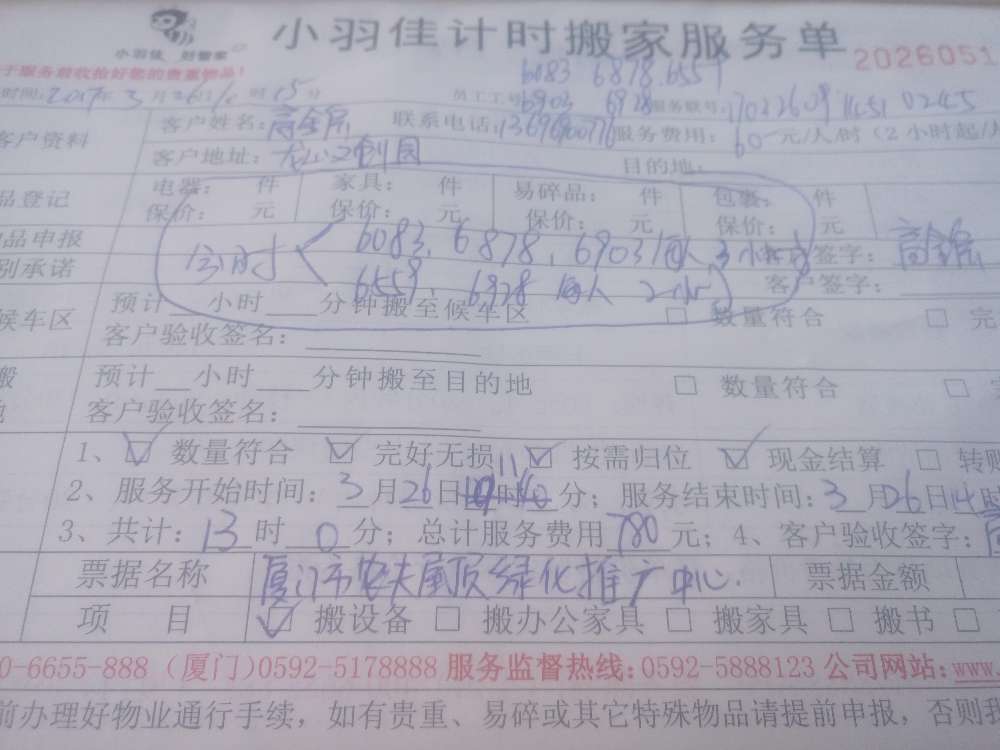 小羽佳 好管家
小羽佳计时搬家服务单
2026051
于服务前收拾好您的贵重物品！
6083 6878.6559
时间：2017年3月26日 时15分 员工工号：6903 6928 服务联号：
客户资料 客户姓名： 联系电话： 服务费用：60元/人/时（2小时起/
客户地址： 创园 目的地：
品登记 电器： 件 家具： 件 易碎品： 件 包裹： 件
保价： 元 保价： 元 保价： 元 保价： 元
品申报 13小时 6083，6878，6903 每人3小时 签字：
别承诺 6559，6928 每人2小时 客户签字：
候车区 预计__小时__分钟搬至候车区 □ 数量符合 □ 完
客户验收签名：
搬 预计__小时__分钟搬至目的地 □ 数量符合 □
客户验收签名：
1、☑ 数量符合 ☑ 完好无损 ☑ 按需归位 ☑ 现金结算 □ 转账
2、服务开始时间：3月26日11时 分；服务结束时间：3月26日14时
3、共计：13时0分；总计服务费用780元；4、客户验收签字：
票据名称 厦门市农夫屋顶绿化推广中心 票据金额
项 目 ☑ 搬设备 □ 搬办公家具 □ 搬家具 □ 搬书 □
0-6655-888（厦门）0592-5178888 服务监督热线：0592-5888123 公司网站：www.
前办理好物业通行手续，如有贵重、易碎或其它特殊物品请提前申报，否则我